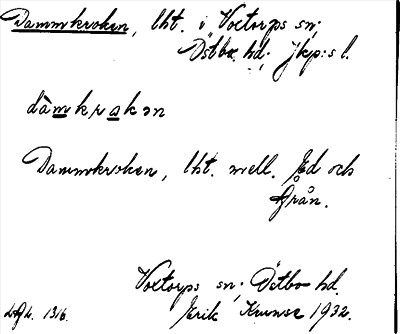 Dammkroken, lht. i Voxtorps sn;
Östbo hd; jkp:s l.
dàmkrakən
Dammkroken, lht. mell. Ed och
Grån.
Voxtorps sn; Östbo hd.
Erik Krunse 1932.
1316.